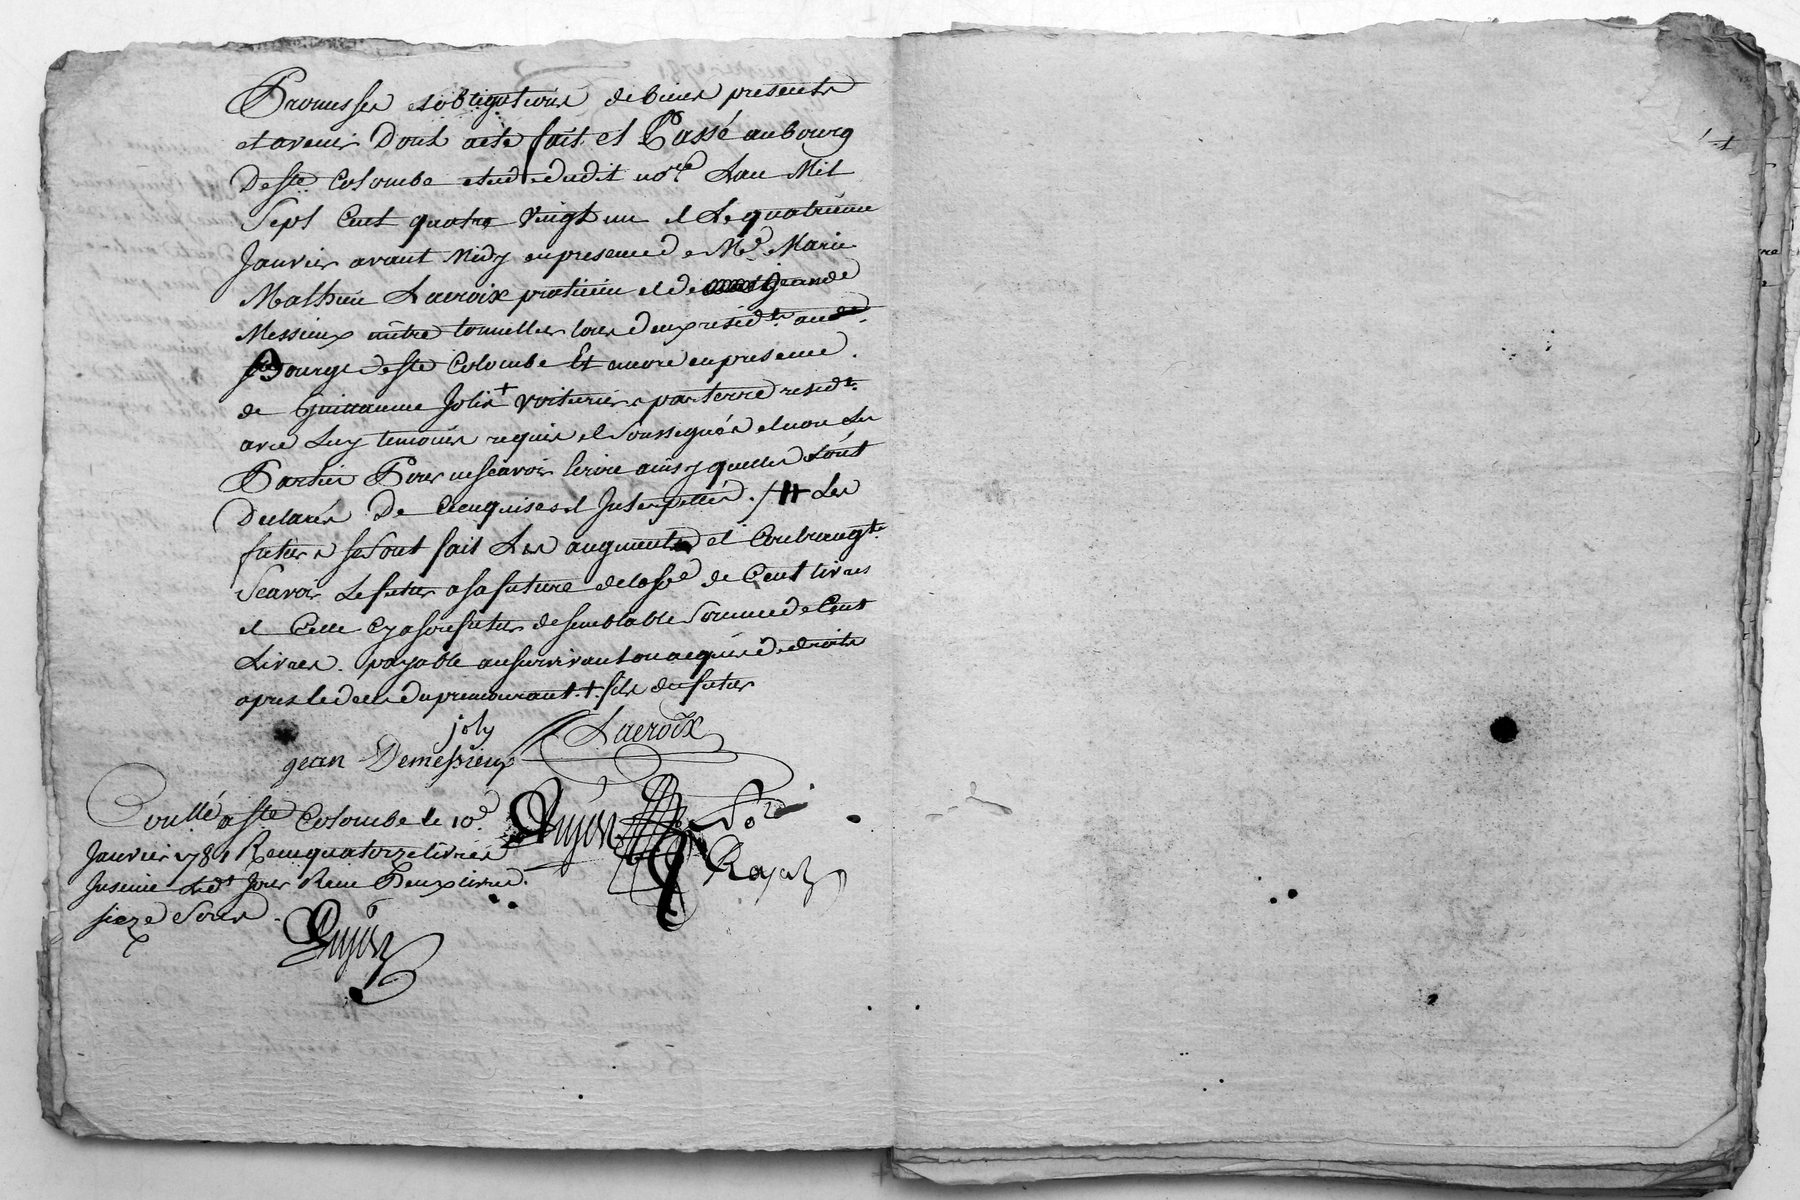 Promesses et obligations de biens presents
et avenir Dont acte fait et Passé au bourg
De Ste Colombe etude dudit nore Lan Mil
Sept Cent quatre Vingt un et Le quatrieme
Janvier avant Midy en presence de Me Marie
Mathieu Lacroix praticien et de Jean de
Messieux mître tonnellier tous deux residts au
Bourg de Ste Colombe Et encore en presence
de Guillaume Jolis + voiturier par terre residt
avec Luy temoins requis et Soussignés et non Les
Parties Pour ne scavoir Ecrire ainsy quelles L'ont
Declarés De Ce enquises et Interpellés . /H Les
futurs se sont fait Les augments et Contraugts
Scavoir Le futur a sa future de la Sve de Cent livres
et Celle Cy a son futur de semblable Somme de Cent
Livres . payable au survivant ou acquis de droits
apres le deces du premourant . + . fils du futur
joly
Lacroix
jean Demessieux
Conllé a Ste Colombe le 10e
Janvier 1781 Reçu quatorze livres
Insinué Ledt Jour Reçu Deux livres
sieze Sous
Dujon
Dujon
Nore
Royal